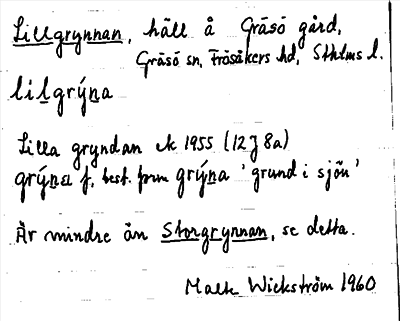 Lillgrynnan, häll å Gräsö gård,
Gräsö sn, Frösåkers hd, Sthlms l.
lil̲grýn̲a
Lilla gryndan ek 1955 (12J 8a)
grýn̲a f, best. form grýn̲a 'grund i sjön'
Är mindre än Storgrynnan, se detta.
Malte Wickström 1960